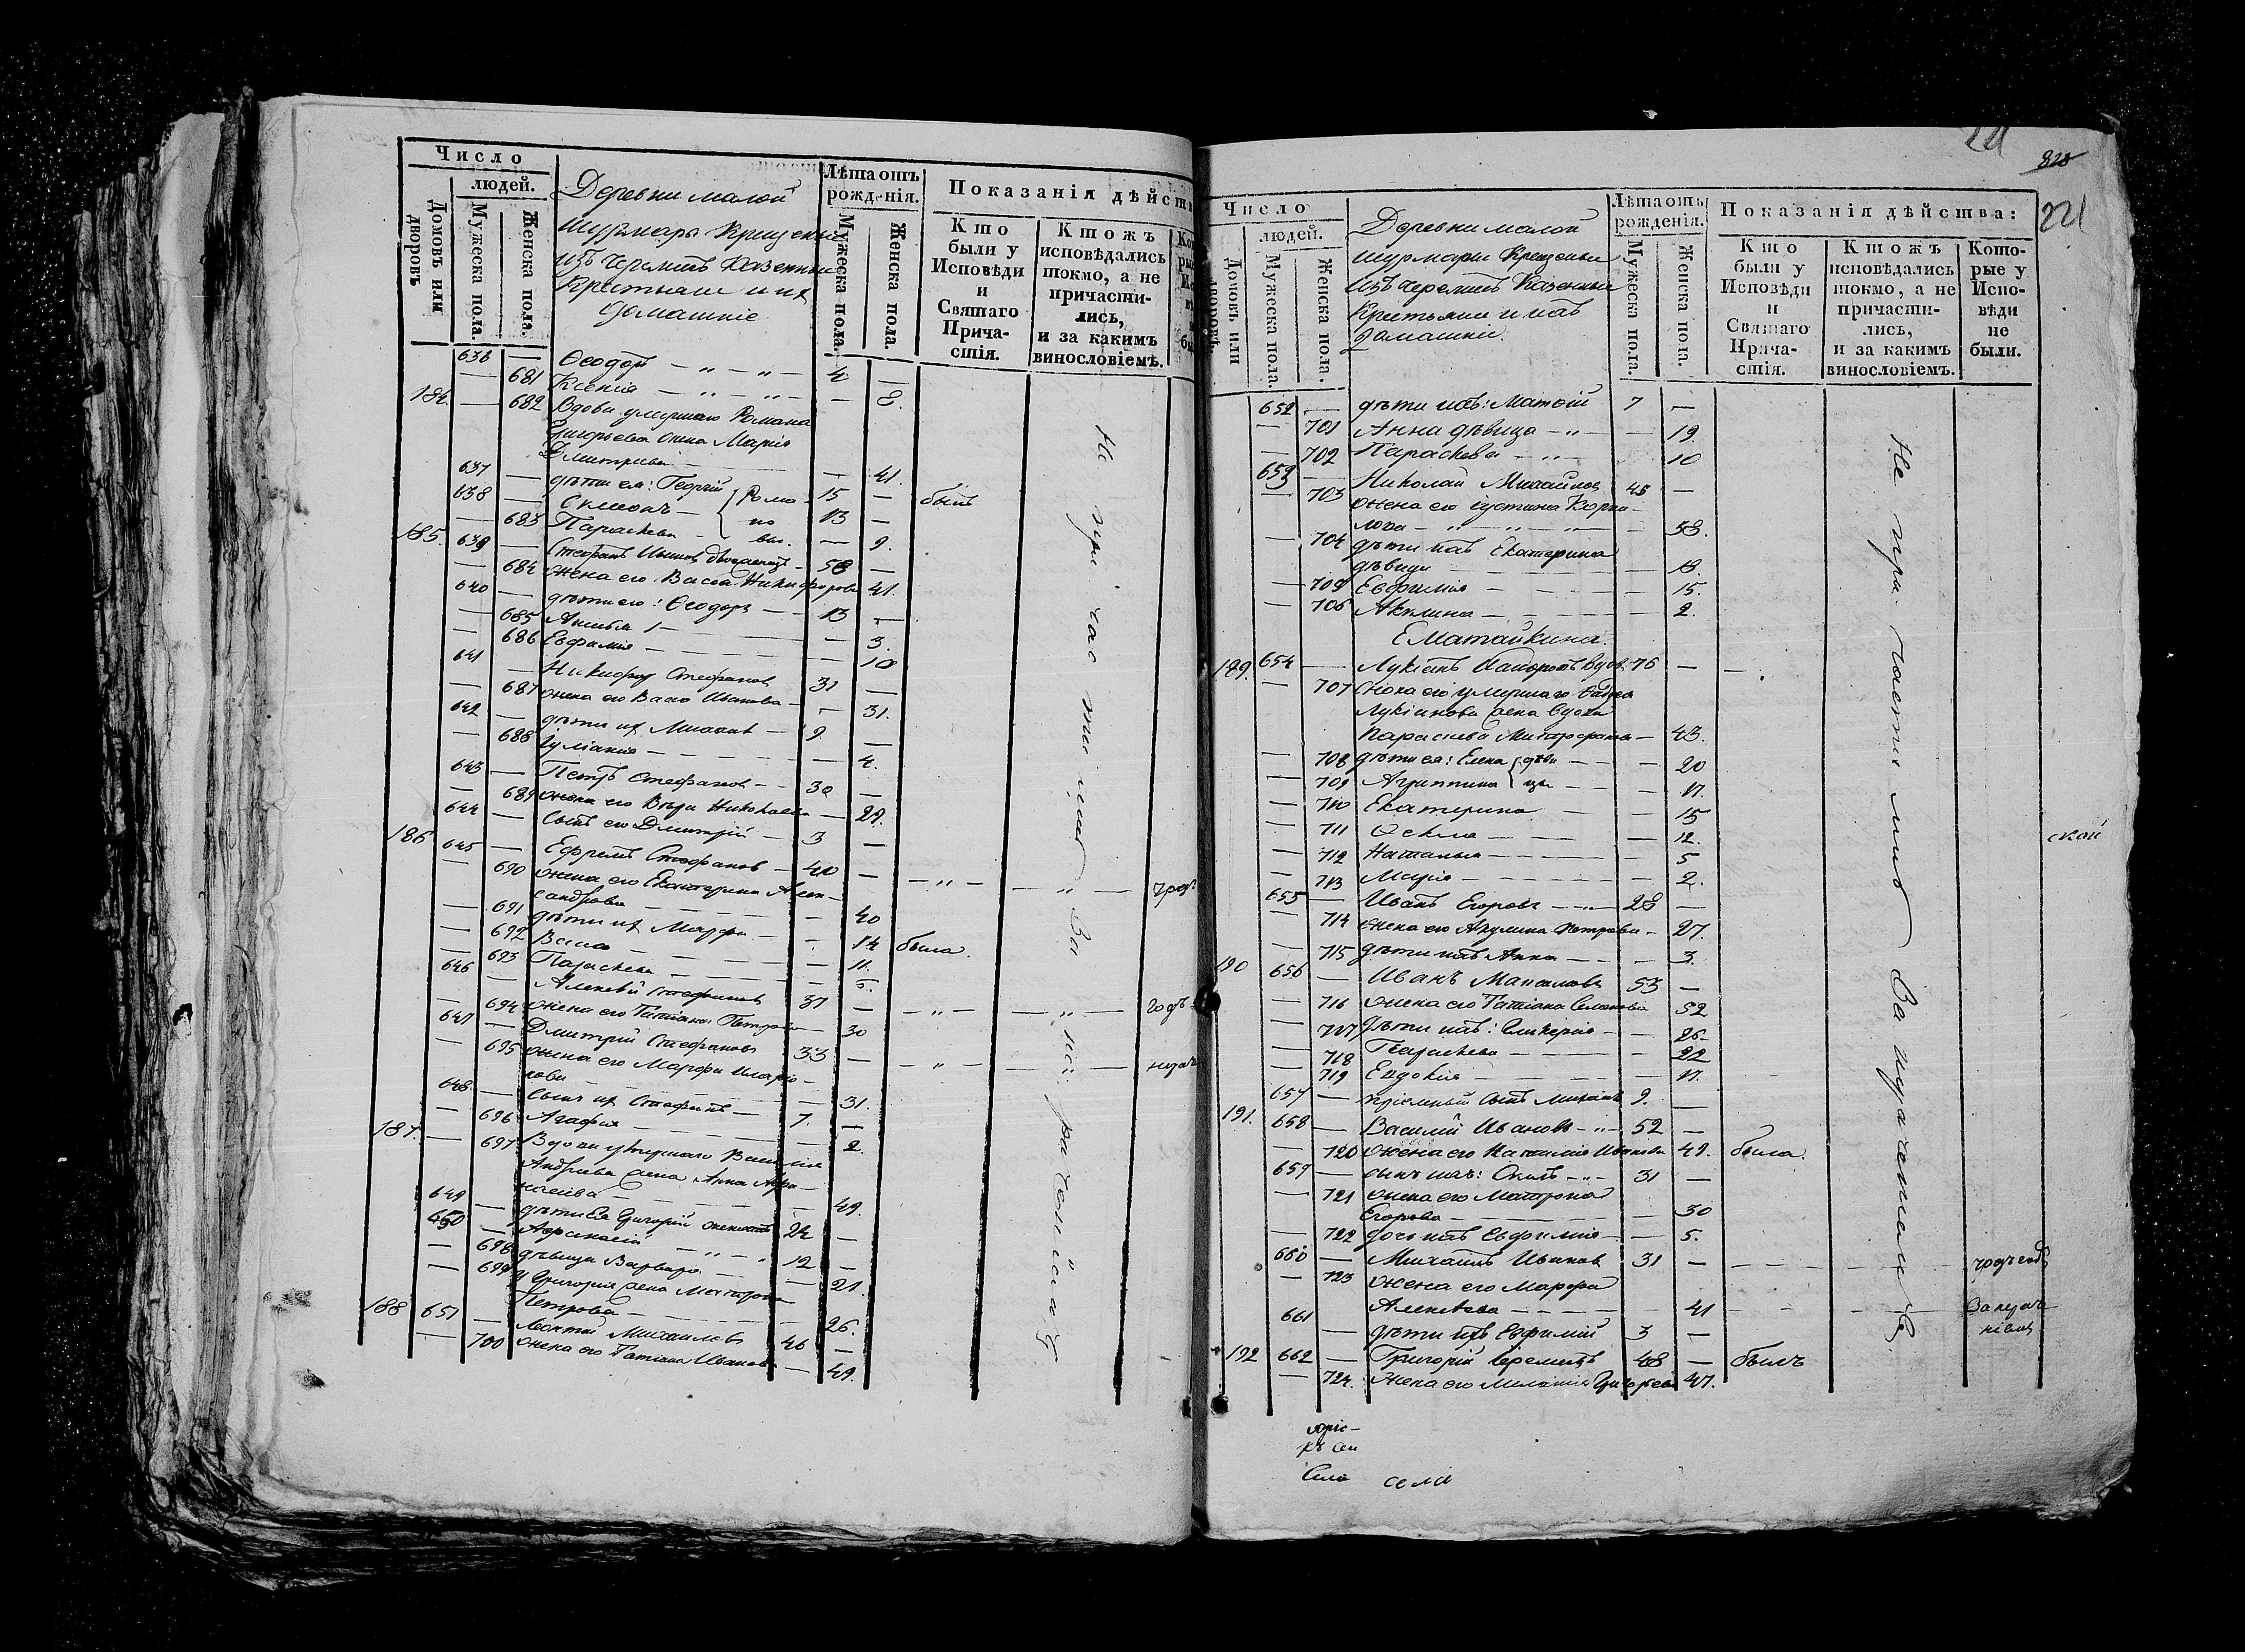 Число
людей.
Домовъ или дворовъ
Мужеска пола.
Женска пола.
Деревни малой
Шурмары Крещеные
изъ Черемисъ Казенныи
Крестьяне и их
домашніе
Лѣта отъ рожденія.
Мужеска пола.
Женска пола.
Показанія дѣйств
Кто были у Исповѣди и Святаго Прича-стія.
Ктожъ исповѣдались токмо, а не причасти-лись, и за какимъ винословіемъ.
636 — Ѳеодоръ — „ — „ — 4 —
— 681 Ксенія — „ — „ — — 8.
184. — 682 Вдова умершаго Романа
Григорьева жена Марія
Дмитріева — — 41.
637 — дѣти ея: Георгій Рома 15 — былъ
638 — Симеонъ — но 13 —
— 683 Параскева — вы. — 9.
185. 639 — Стефанъ Ивановъ двоеженецъ — 58 —
— 684 жена его Васса Никифорова 41.
640 — дѣти его: Ѳеодоръ — — 13 —
— 685 Анисья — — 3.
— 686 Евфимія — — 10
641 — Никифоръ Стефановъ 31 —
— 687 жена его Васса Иванова — — 31.
642 — дѣти их Михаилъ — 9 —
— 688 Іуліанія — — — 4.
643 — Петръ Стефановъ — — 30 —
— 689 жена его Вѣра Николаева — 29.
644 — сынъ его Дмитрій — 3 —
186 645 — Ефремъ Стефановъ — 40 — — „ — — „ —
— 690 жена его Екатерина Алек-
сандрова — — 40
— 691 дѣти их Марфа — — 14 была.
— 692 Васса — — 11.
— 693 Параскева — — 5.
646 — Алексѣй Стефановъ 37 — — „ — — „ — годъ
— 694 жена его Татіана Петрова — 30
647 — Дмитрій Стефановъ 33 — — „ —
— 695 жена его Марфа Иларіо-
нова — — 31.
648 — Сынъ их Стефанъ — 7. —
— 696 Агафія — — 2.
187. — 697 Вдова умершаго Василія
Андреева жена Анна Афа-
насіева — — 49.
649 — дѣти Ея Григорій женатъ 24 —
650 — Афанасій — „ — „ 12 —
— 698 дѣвица Варвара — — 21.
— 699 У Григорія жена Матрона
Петрова — — 26.
188 651 — Леонтій Михаиловъ 46 —
— 700 жена его Татіана Иванова — 49.
Не причастились За нерачением
Число
людей.
Домовъ или дворовъ.
Мужеска пола.
Женска пола.
Деревни малой
Шурмары Крещеныи
изъ Черемисъ Казенныи
Крестьяне и ихъ
домашніи.
Лѣта отъ рожденія.
Мужеска пола.
Женска пола.
Показанія дѣйства:
Кто были у Исповѣди и Святаго Прича-стія.
Ктожъ исповѣдались токмо, а не причасти-лись, и за какимъ винословіемъ.
Кото-рые у Испо-вѣди не были.
221
652 — дѣти ихъ: Матѳій 7 —
— 701 Анна дѣвица — „ — — 19.
— 702 Параскева — „ — 10
653 — Николай Михайловъ 45 —
— 703 жена его Іустина Корни-
лова — „ — „ — „ — 58.
— 704 дѣти ихъ Екатерина
дѣвица — 18.
— 705 Евфимія — — 15.
— 706 Акилина — — 2.
Ематайкина.
189. 654 — Лукіанъ вдов. 76 — —
— 707 Сноха его умершаго
Лукіанова жена вдова
Параскева Митрофанова — 43.
— 708 дѣти ея: Елена дѣви — — 20
— 709 Агриппина цы — — 17.
— 710 Екатерина — — 15
— 711 Ѳекла — — 12.
— 712 Наталья — — 5
— 713 Марія — — 2.
655 — Иванъ Егоровъ — „ — 28 —
— 714 жена его Акулина Петрова — 27.
— 715 дѣти ихъ Анна — — 3.
190 656 — Иванъ Максимовъ 53 —
— 716 жена его Татіана Семенова 52
— 717 дѣти ихъ: Гликерія — — 26
— 718 Параскева — — 22
— 719 Евдокія — — 17.
657 — пріемный сынъ Михаилъ 9. —
191. 658 — Василій Ивановъ — „ — 52 —
— 720 жена его Наталія Иванова 49. была.
659 — сынъ ихъ: Осипъ — „ — 31 —
— 721 жена его Матрона
Егорова — — 30
— 722 дочь ихъ Евфимія — — 5.
660 — Михаилъ Ивановъ 31 — —
— 723 жена его Марфа
Алексѣева — — 41 — За нерач-
661 — дѣти ихъ Евфимій 3 —
192 662 — Григорій 48 — былъ
— 724. жена его Меланія Григорьева 47.
Не причастились За нерачением
ской
села